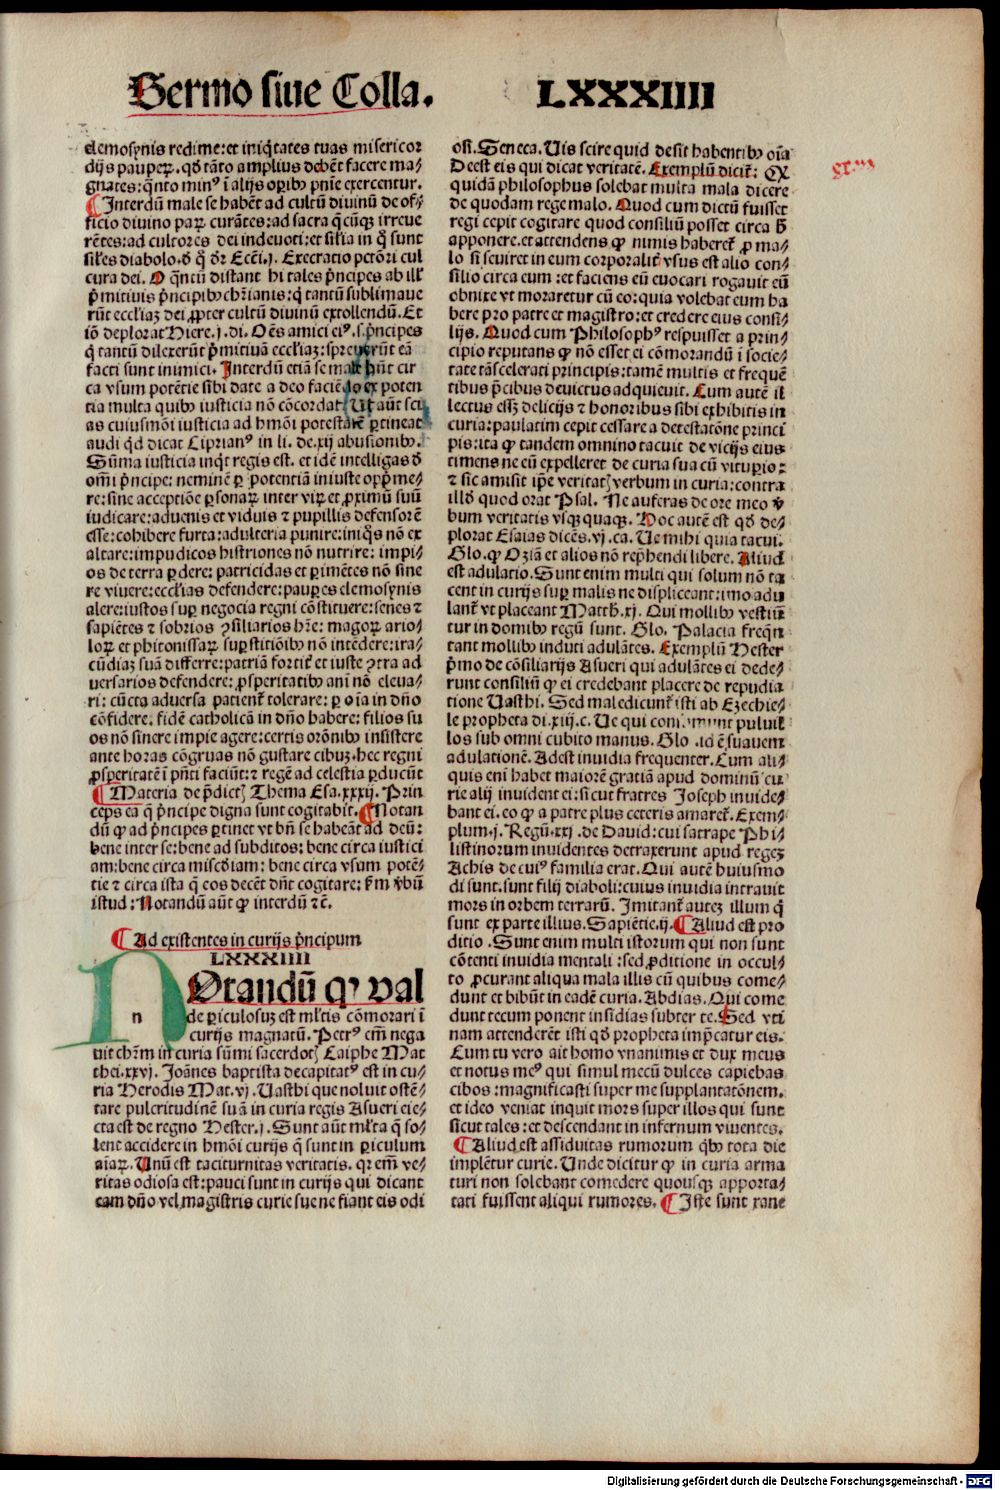 Sermo siue Colla. LXXXIIII
elemosynis redime: et iniq̃tates tuas misericor
dijs pauꝑꝝ. qd̓ tãto amplius debẽt facere ma⸗
gnates: q̃nto minꝰ ĩ alijs oꝑibꝰ pñie exercentur.
¶ Interdũ male se habẽt ad cultũ diuinũ de of⸗
ficio diuino paꝝ curãtes: ad sacra q̃ cũqꝫ irreue
rẽtes: ad cultores dei indeuoti: et sil̃ia in q̃ sunt
sil̃es diabolo. d̓ q̃ dr̃ Ecc̃i.j. Execratio pctõri cul
tura dei. O q̃ntũ distant hi tales p̃ncipes ab ill̃
p̃mitiuis p̃ncipibꝰ chr̃ianis: q̃ tantũ sublimaue
rũt eccl̃iaꝫ dei ꝓpter cultũ diuinũ extollendũ. Et
iõ deplorat Hiere.j. di. Oẽs amici eiꝰ. s. p̃ncipes
q̃ tantũ dilexerũt p̃mitiuã eccl̃iaꝫ: spreuerũt eã
facti sunt inimici. Interdũ etiã se male hñt cir
ca vsum potẽtie sibi date a deo faciẽdo ex poten
tia multa quibꝰ iusticia nõ cõcordat. Ut aũt sci⸗
as cuiusmõi iusticia ad hmõi potestatẽ ꝑtineat
audi qd̓ dicat Ciprianꝰ in li. de .xij abusionibꝰ.
Sũma iusticia inq̃t regis est. et idẽ intelligas d̓
om̃i p̃ncipe: neminẽ ꝑ potentiã iniuste opp̃me⸗
re: sine acceptiõe ꝑsonaꝝ inter viꝝ et ꝓximũ suũ
iudicare: aduenis et viduis ⁊ pupillis defensorẽ
esse: cohibere furta: adulteria punire: iniq̃s nõ ex
altare: impudicos histriones nõ nutrire: impi⸗
os de terra ꝑdere: patricidas et ꝑimẽtes nõ sine
re viuere: eccl̃ias defendere: pauꝑes elemosynis
alere: iustos suꝑ negocia regni cõstituere: senes ⁊
sapiẽtes ⁊ sobrios ꝯsiliarios hr̃e: magoꝝ ario⸗
loꝝ et phitonissaꝝ suꝑstitiõibꝰ nõ intẽdere: ira⸗
cũdiaꝫ suã differre: patriã fortir̃ et iuste ꝯtra ad
uersarios defendere: ꝓsperitatibꝰ aniĩ nõ eleua⸗
ri: cũcta aduersa patienr̃ tolerare: ꝑ oĩa in dño
cõfidere. fidẽ catholicã in dño habere: filios su
os nõ sinere impie agere: certis orõnibꝰ insistere
ante horas cõgruas nõ gustare cibuꝫ. hec regni
ꝓsperitatẽ ĩ pñti faciũt: ⁊ regẽ ad celestia ꝑducũt
¶ Materia de p̃dict̃ Thema Esa.xxxij. Prin
ceps ea q̃ p̃ncipe digna sunt cogitabit. ¶ Notan
dũ ꝙ ad p̃ncipes ꝑtinet vt bñ se habeãt ad deũ:
bene inter se: bene ad subditos: bene circa iustici
am: bene circa misc̓diam: bene circa vsum potẽ⸗
tie ⁊ circa ista q̃ eos decẽt dñt cogitare: ẜm ṽbũ
istud: Notandũ aũt ꝙ interdũ ⁊c̃.
¶ Ad existentes in curijs p̃ncipum
LXXXIIII
n
NOtandũ ꝙ val
de ꝑiculosuꝫ est ml̃tis cõmorari ĩ
curijs magnatũ. Petrꝰ em̃ nega
uit chr̃m in curia sũmi sacerdot̃ Caiphe Mat
thei.xxvj. Joãnes baptista decapitatꝰ est in cu⸗
ria Herodis Mat.vj. Uasthi que noluit ostẽ⸗
tare pulcritudinẽ suã in curia regis Asueri eie⸗
cta est de regno Hester.j. Sunt aũt ml̃ta q̃ so⸗
lent accidere in hmõi curijs q̃ sunt in ꝑiculum
aĩaꝝ. Unũ est taciturnitas veritatis. qr em̃ ve⸗
ritas odiosa est: pauci sunt in curijs qui dicant
eam dño vel magistris curie sue ne fiant eis odi
osi. Seneca. Uis scire quid desit habentibꝰ oĩa
Deest eis qui dicat veritatẽ. Exemplũ dicit̃: Ex
quidã philosophus solebat multa mala dicere
de quodam rege malo. Quod cum dictũ fuisset
regi cepit cogitare quod consiliũ posset circa h̓
apponere. et attendens ꝙ nimis haberet̃ ꝓ ma⸗
lo si seuiret in eum corporalit̃ vsus est alio con⸗
silio circa eum: et faciens eũ euocari rogauit eũ
obnixe vt moraretur cũ eo: quia volebat eum ha
bere pro patre et magistro: et credere eius consi⸗
lijs. Quod cum Philosophꝰ respuisset a prin⸗
cipio reputans ꝙ nõ esset ei cõmorandũ ĩ socie⸗
tate tã scelerati principis: tamẽ multis et frequẽ
tibus p̃cibus deuictus adquieuit. Cum autẽ il
lectus esset delicijs ⁊ honoribus sibi exhibitis in
curia: paulatim cepit cessare a detestatõne princi
pis: ita ꝙ tandem omnino tacuit de vicijs eius
timens ne eũ expelleret de curia sua cũ vituperio:
⁊ sic amisit ip̃e veritat̃ verbum in curia: contra
illd̓ quod orat Psal. Ne auferas de ore meo ṽ
bum veritatis vsqꝫ quaqꝫ. Hoc autẽ est qd̓ de⸗
plorat Esaias dicẽs. vj. ca. Ue mihi quia tacui.
Glo. ꝙ Oziã et alios nõ rep̃hendi libere. Aliud
est adulatio. Sunt enim multi qui solum nõ ta
cent in curijs suꝑ malis ne displiceant: imo adu
lant̃ vt placeant Matth.xj. Qui mollibꝰ vestiũ
tur in domibꝰ regũ sunt. Glo. Palacia freq̃n
tant mollibꝰ induti adulãtes. Exemplũ Hester
p̃mo de cõsiliarijs Asueri qui adulãtes ei dede⸗
runt consiliũ ꝙ ei credebant placere de repudia
tione Uasthi. Sed maledicunt̃ isti ab Ezechie⸗
le propheta di.xiij.c. Ue qui puluil
los sub omni cubito manus. Glo. id ẽ suauem
adulationẽ. Adest inuidia frequenter. Cum ali⸗
quis eni habet maiorẽ gratiã apud dominũ cu
rie alij inuident ei: sicut fratres Joseph inuide⸗
bant ei. eo ꝙ a patre plus ceteris amaret̃. Exem⸗
plum .j. Regũ.xxj. de Dauid: cui satrape Phi⸗
listinorum inuidentes detraxerunt apud regeꝫ
Achis de cuiꝰ familia erat. Qui autẽ huiusmo
di sunt. sunt filij diaboli: cuius inuidia intrauit
mors in orbem terrarũ. Imitant̃ auteꝫ illum q̃
sunt ex parte illius. Sapiẽtie.ij. ¶ Aliud est pro
ditio. Sunt enim multi istorum qui non sunt
cõtenti inuidia mentali: sed ꝓditione in occul⸗
to ꝓcurant aliqua mala illis cũ quibus come⸗
dunt et bibũt in eadẽ curia. Abdias. Qui come
dunt tecum ponent insidias subter te. Sed vti
nam attenderẽt isti qd̓ propheta imp̃catur eis.
Cum tu vero ait homo vnanimis et dux meus
et notus meꝰ qui simul mecũ dulces capiebas
cibos: magnificasti super me supplantatõnem.
et ideo veniat inquit mors super illos qui sunt
sicut tales: et descendant in infernum viuentes.
¶ Aliud est assiduitas rumorum qbꝰ tota die
implẽtur curie. Unde dicitur ꝙ in curia arma
turi non solebant comedere quousqꝫ apporta⸗
tati fuissent aliqui rumores. ¶ Iste sunt rane
Digitalisierung gefördert durch die Deutsche Forschungsgemeinschaft - DFG